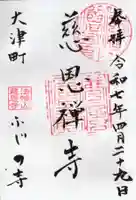 奉拝 令和七年四月二十九日
慈恩禅寺
大津町
ふじの寺